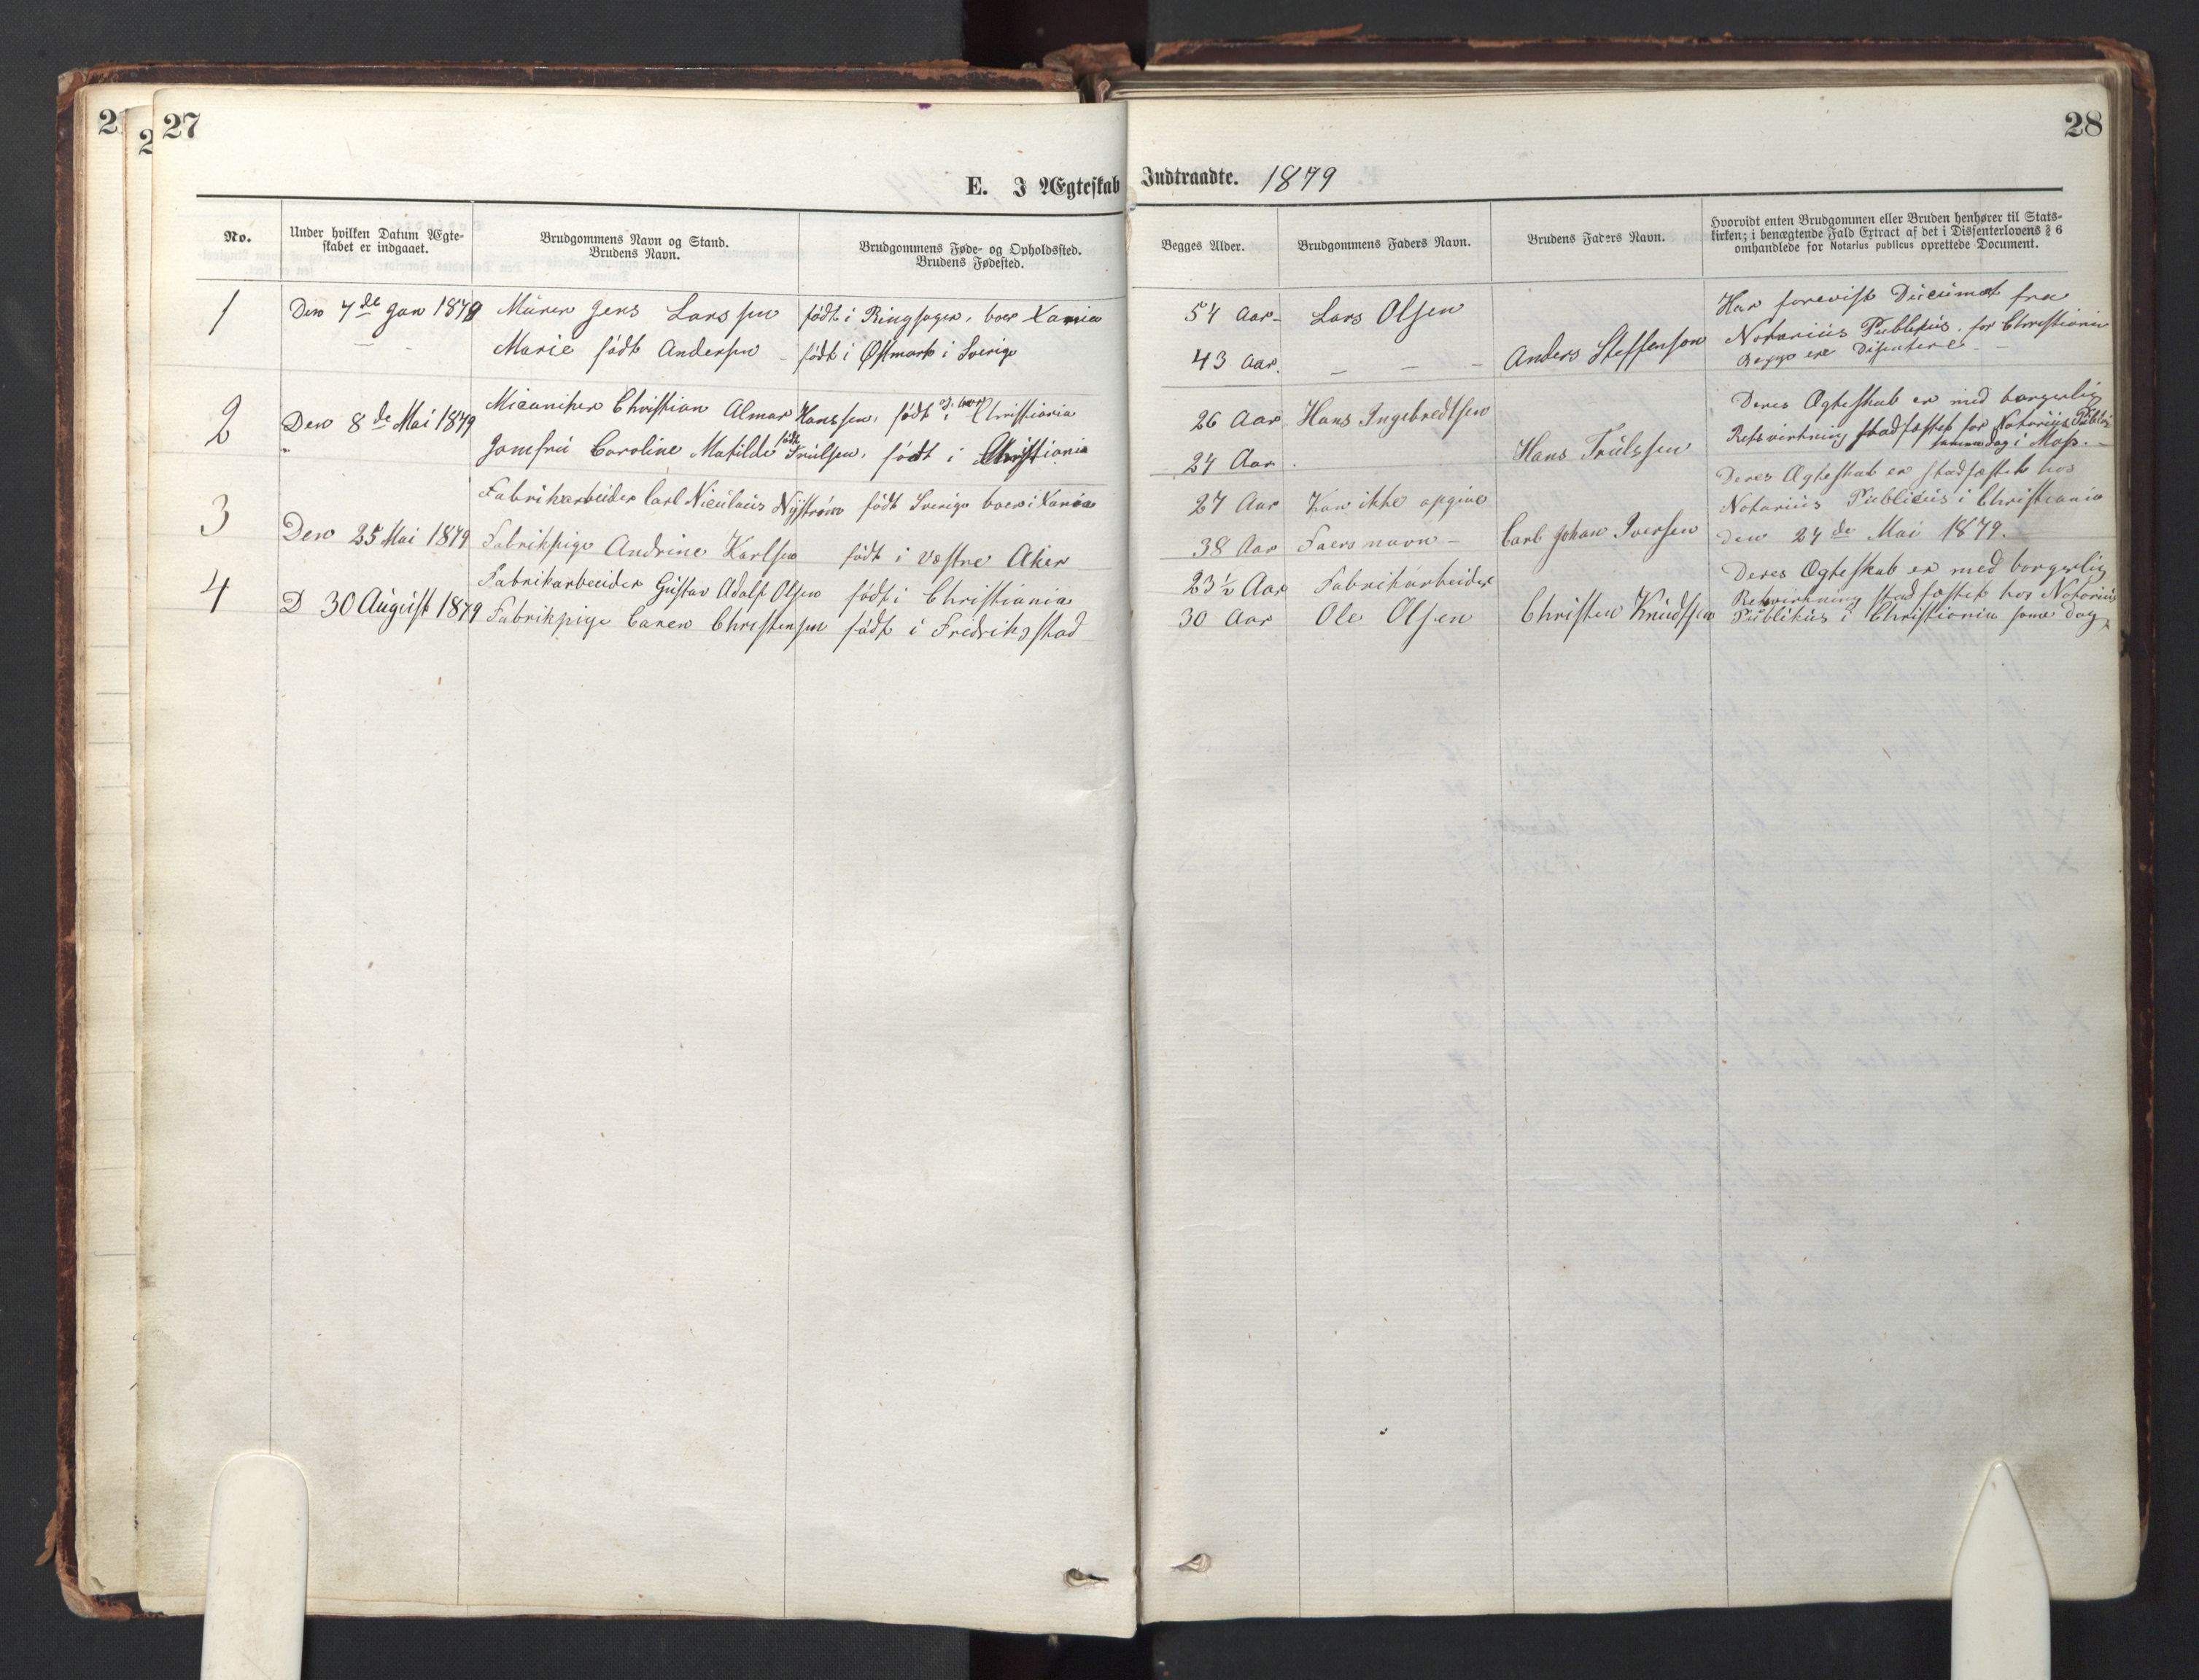 27
28
E. I Ægteskab Indtraadte. 1879
No.
Under hvilken Datum Ægteskabet er indgaaet.
Brudgommens Navn og Stand.
Brudens Navn.
Brudgommens Føde- og Opholdssted.
Brudens Fødested.
Begges Alder.
Brudgommens Faders Navn.
Brudens Faders Navn.
Hvorvidt enten Brudgommen eller Bruden henhører til Stats-
kirken; i benægtende Fald Extract af det i Dissenterlovens § 6
omhandlede for Notarius publicus oprettede Document.
1
Den 7de Jan 1879
Murer Jens Larssen
født i Ringsager, boer Xania
54 Aar
Lars Olsen
Har forevist Documet fra
Marie født Andersen
født i Østmark i Sverige
43 Aar.
Anders Steffensen
Notarius Publikus for Christiania
Begge ere Disentere
2
Den 8de Mai 1879
Micaniker Christian Almar Hanssen, født og boer i Christiania
26 Aar
Hans Ingebredtsen
Deres Ægteskab er med borgerlig
Jomfru Caroline Matilde født Trulsen, født i Christiania
24 Aar
Hans Trulssen
Retsvirkning stadfæstet for Notarius Publi
samme dag i Moss.
3
Den 25 Mai 1879
Fabrikarbeider Carl Niculaus Nÿstrøm født Sverige boer i Xania
27 Aar
Kan ikke opgive
Deres Ægteskab er stadfæstet hos
Notarius Publicus i Christiania
Fabrikpige Andrine Karlsen født i Vestre Aker
38 Aar
Faers navn
Carl Johan Iversen
den 24de Mai 1879.
4
D 30 August 1879
Fabrikarbeider Gustav Adolf Olsen født i Christiania
23½ Aar
Fabrikarbeider
Deres Ægteskab er med borgerlig
Retsvirkning stadfæstet hos Notarius
Fabrikpige Caren Christensen født i Fredrikstad
30 Aar
Ole Olsen
Christen Knudsen
Publikus i Christiania same dag